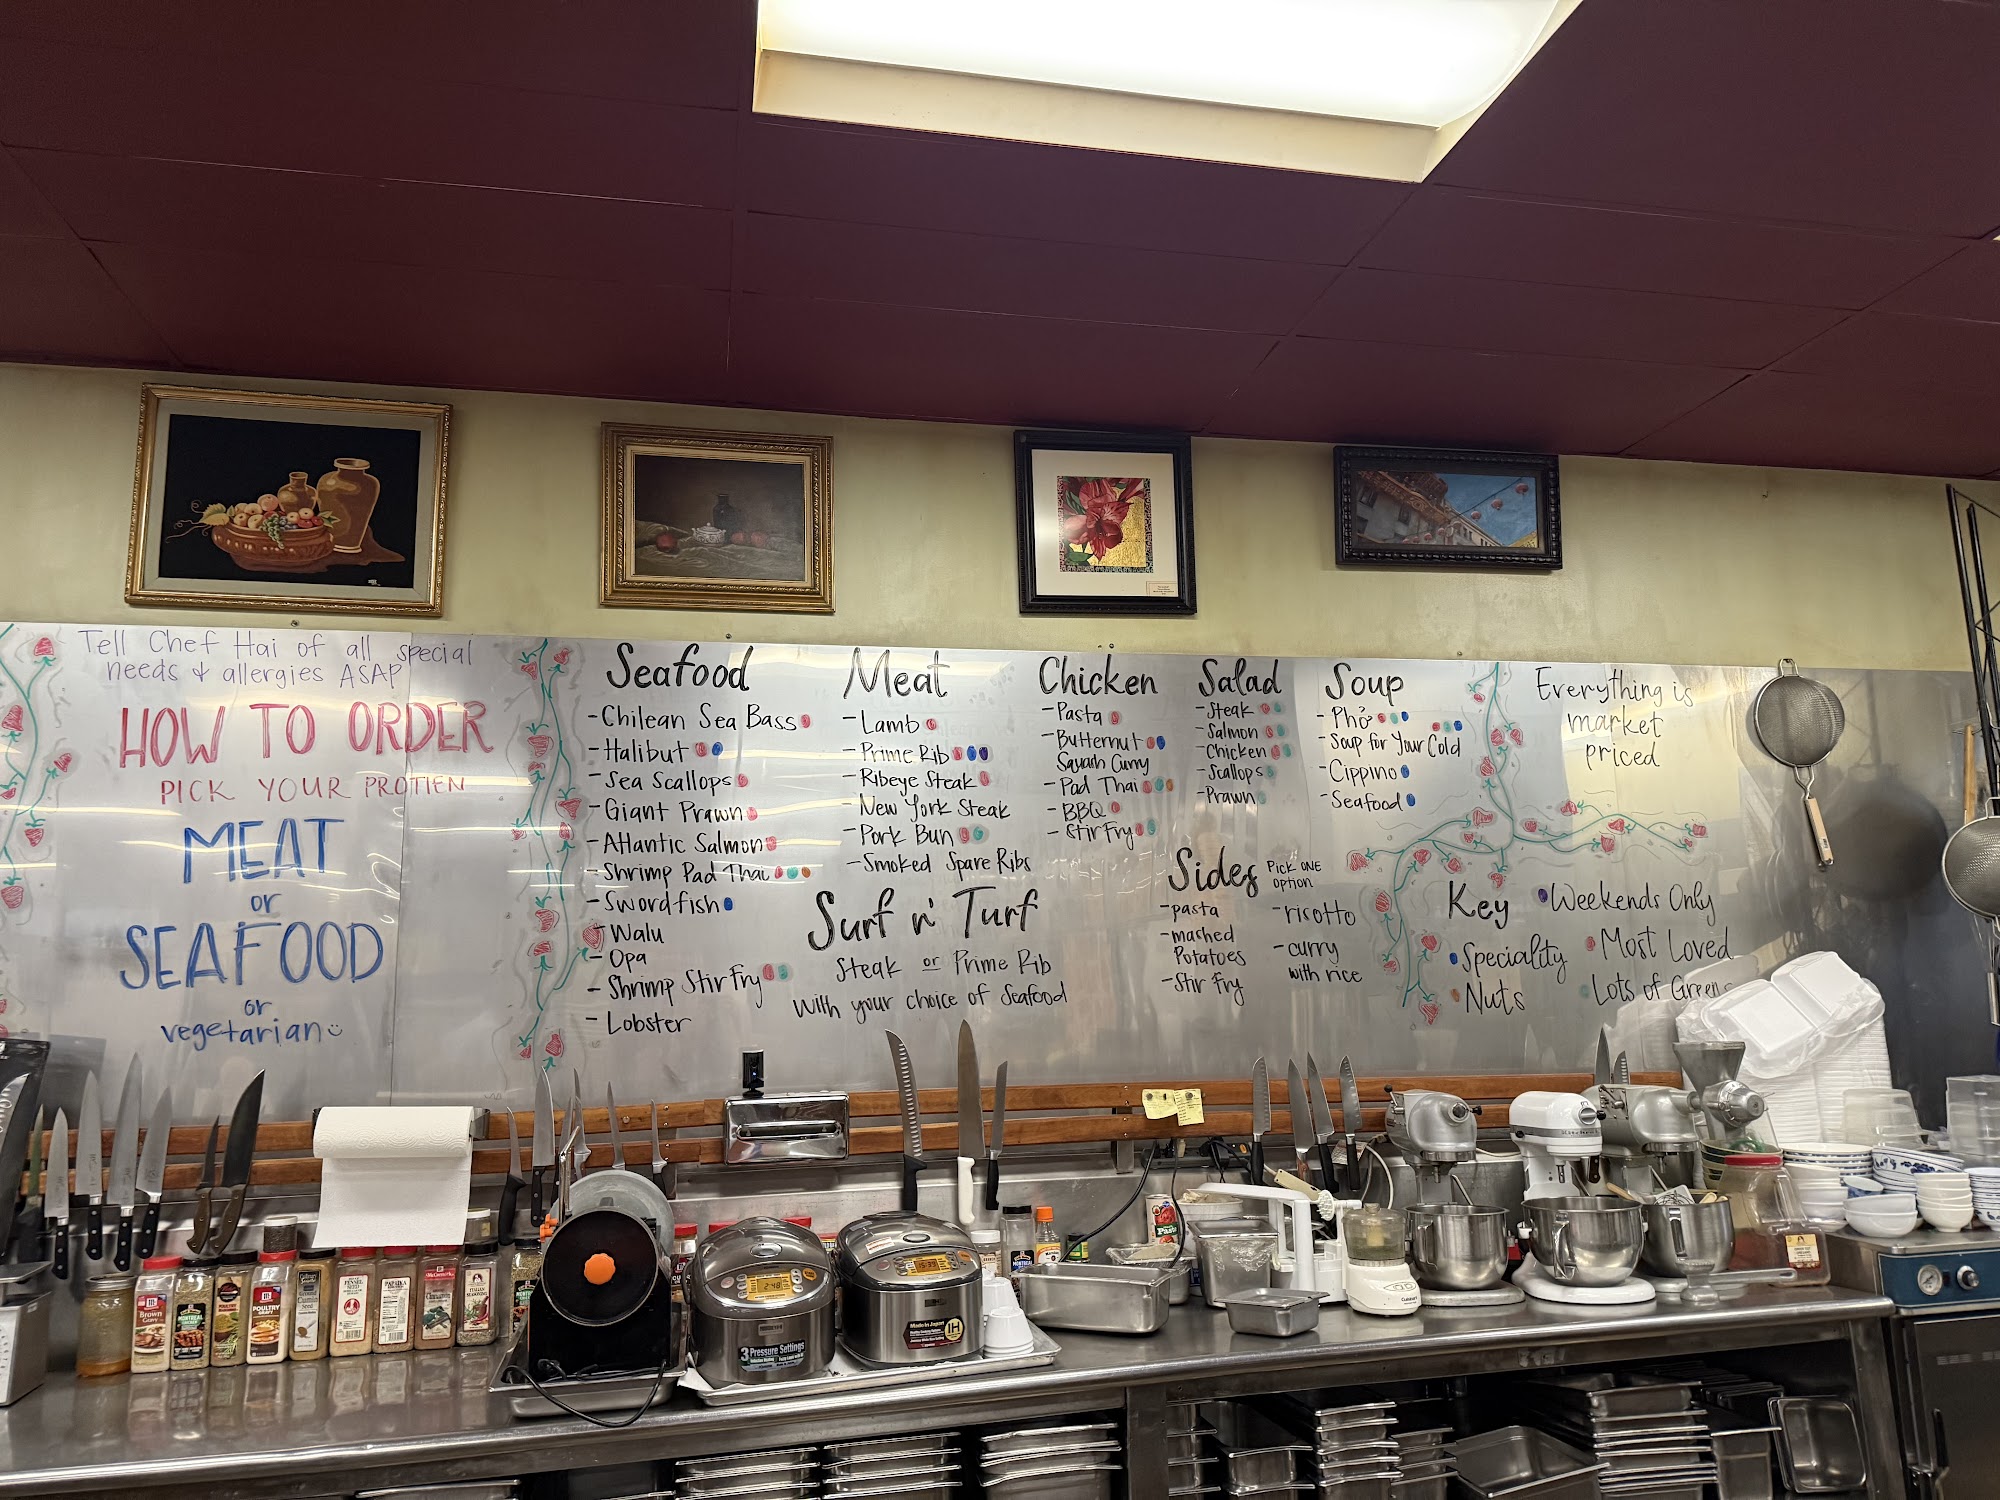 Tell Chef Hai of all special
needs & allergies ASAP
HOW TO ORDER
PICK YOUR PROTIEN
MEAT
or
SEAFOOD
or
vegetarian
Seafood
- Chilean Sea Bass
- Halibut
- Sea Scallops
- Giant Prawn
- Atlantic Salmon
- Shrimp Pad Thai
- Swordfish
- Walu
- Opa
- Shrimp Stir Fry
- Lobster
Meat
- Lamb
- Prime Rib
- Ribeye Steak
- New York Steak
- Pork Bun
- Smoked Spare Ribs
Surf n' Turf
Steak or Prime Rib
With your choice of Seafood
Chicken
- Pasta
- Butternut
Squash Curry
- Pad Thai
- BBQ
- Stir Fry
Salad
- Steak
- Salmon
- Chicken
- Scallops
- Prawn
Soup
- Phở
- Soup for Your Cold
- Cippino
- Seafood
Sides
PICK ONE
OPTION
- pasta
- mashed
Potatoes
- Stir fry
- risotto
- curry
with rice
Everything is
market
priced
Key
Weekends Only
Speciality
Most Loved
Nuts
Lots of Greens
Brown
Gravy
MONTREAL
POULTRY
POULTRY
GRAVY
PAPRIKA
ITALIAN
3 Pressure Settings
Made in Japan
IH
2:48
Cuisinart